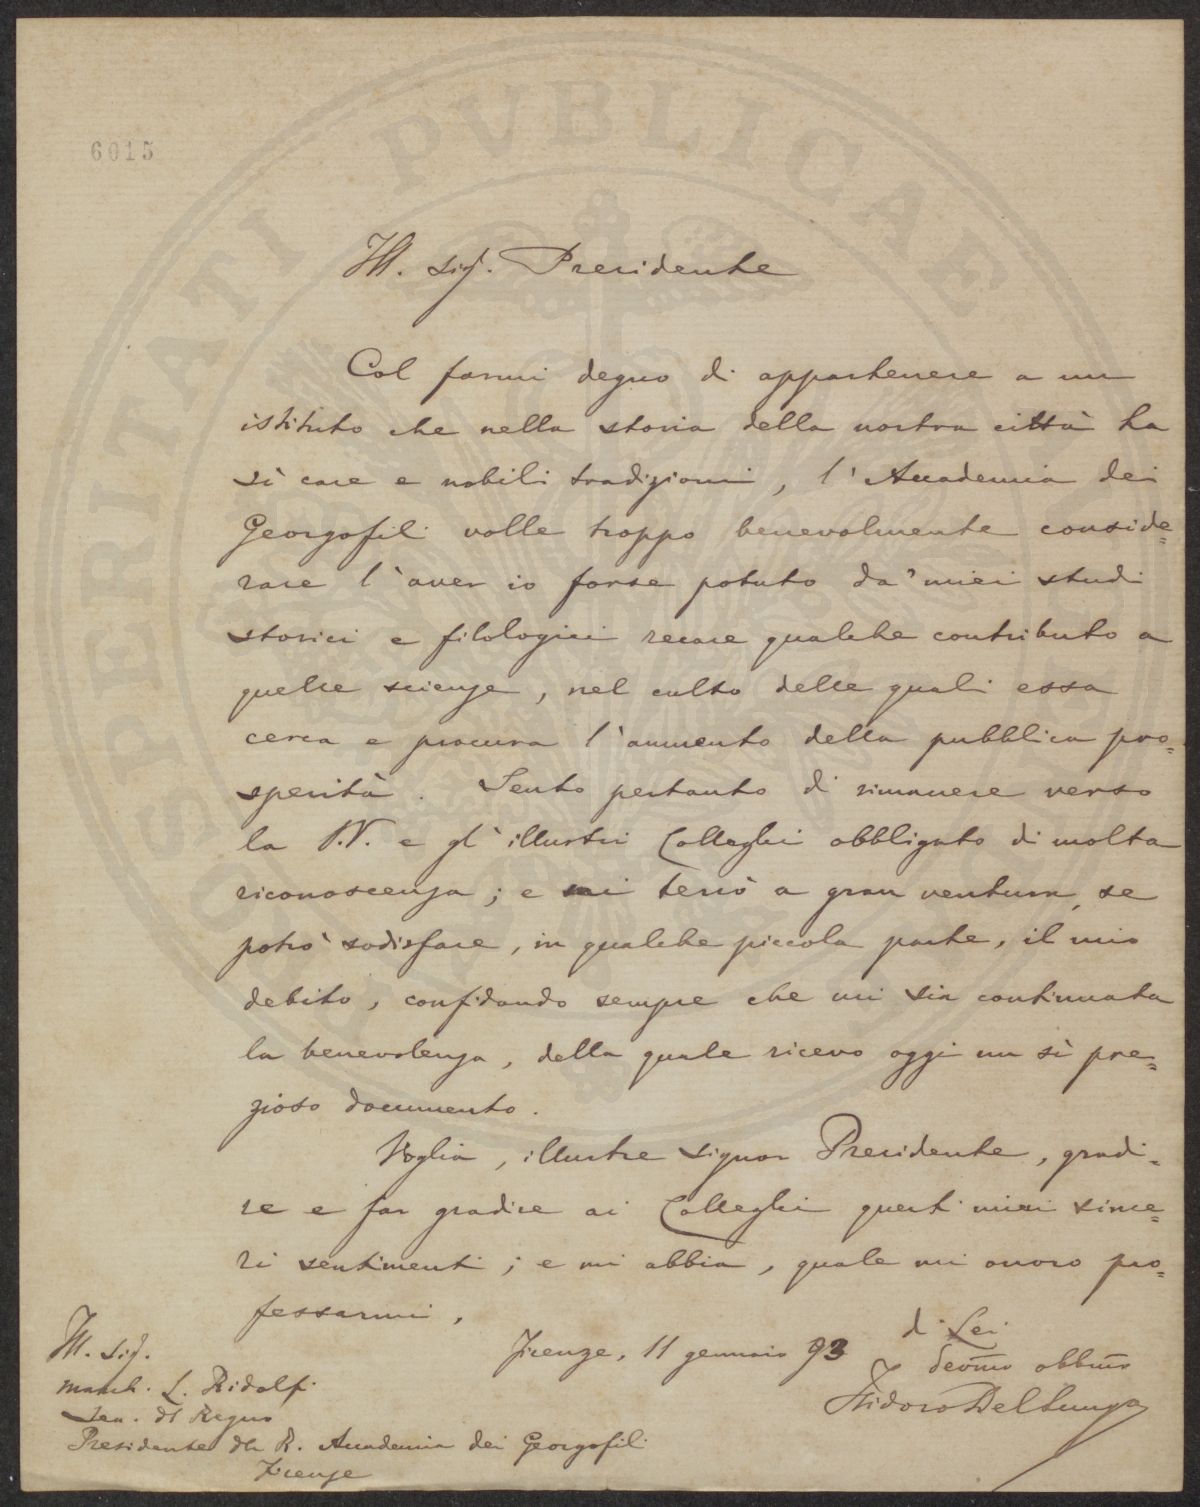 6015
PROSPERITATI PVBLICAE
Ill. sig. Presidente
Col farmi degno di appartenere a un
istituto che nella storia della nostra città ha
sì care e nobili tradizioni, l'Accademia dei
Georgofili volle troppo benevolmente conside=
rare l'aver io forse potuto da' miei studi
storici e filologici recare qualche contributo a
quelle scienze, nel culto delle quali essa
cerca e procura l'aumento della pubblica pro=
sperità. Sento pertanto di rimanere verso
la S.V. e gl'illustri Colleghi obbligato di molta
riconoscenza; e mi terrò a gran ventura, se
potrò sodisfare, in qualche piccola parte, il mio
debito, confidando sempre che mi sia continuata
la benevolenza, della quale ricevo oggi un sì pre=
zioso documento.
Voglia, illustre signor Presidente, gradi=
re e far gradire ai Colleghi questi miei since=
ri sentimenti; e mi abbia, quale mi onoro pro=
fessarmi,
Firenze, 11 gennaio 93
di Lei
devmo obbmo
Isidoro Del Lungo
Ill. sig.
march. L. Ridolfi
Sen. dl Regno
Presidente dlla R. Accademia dei Georgofili
Firenze